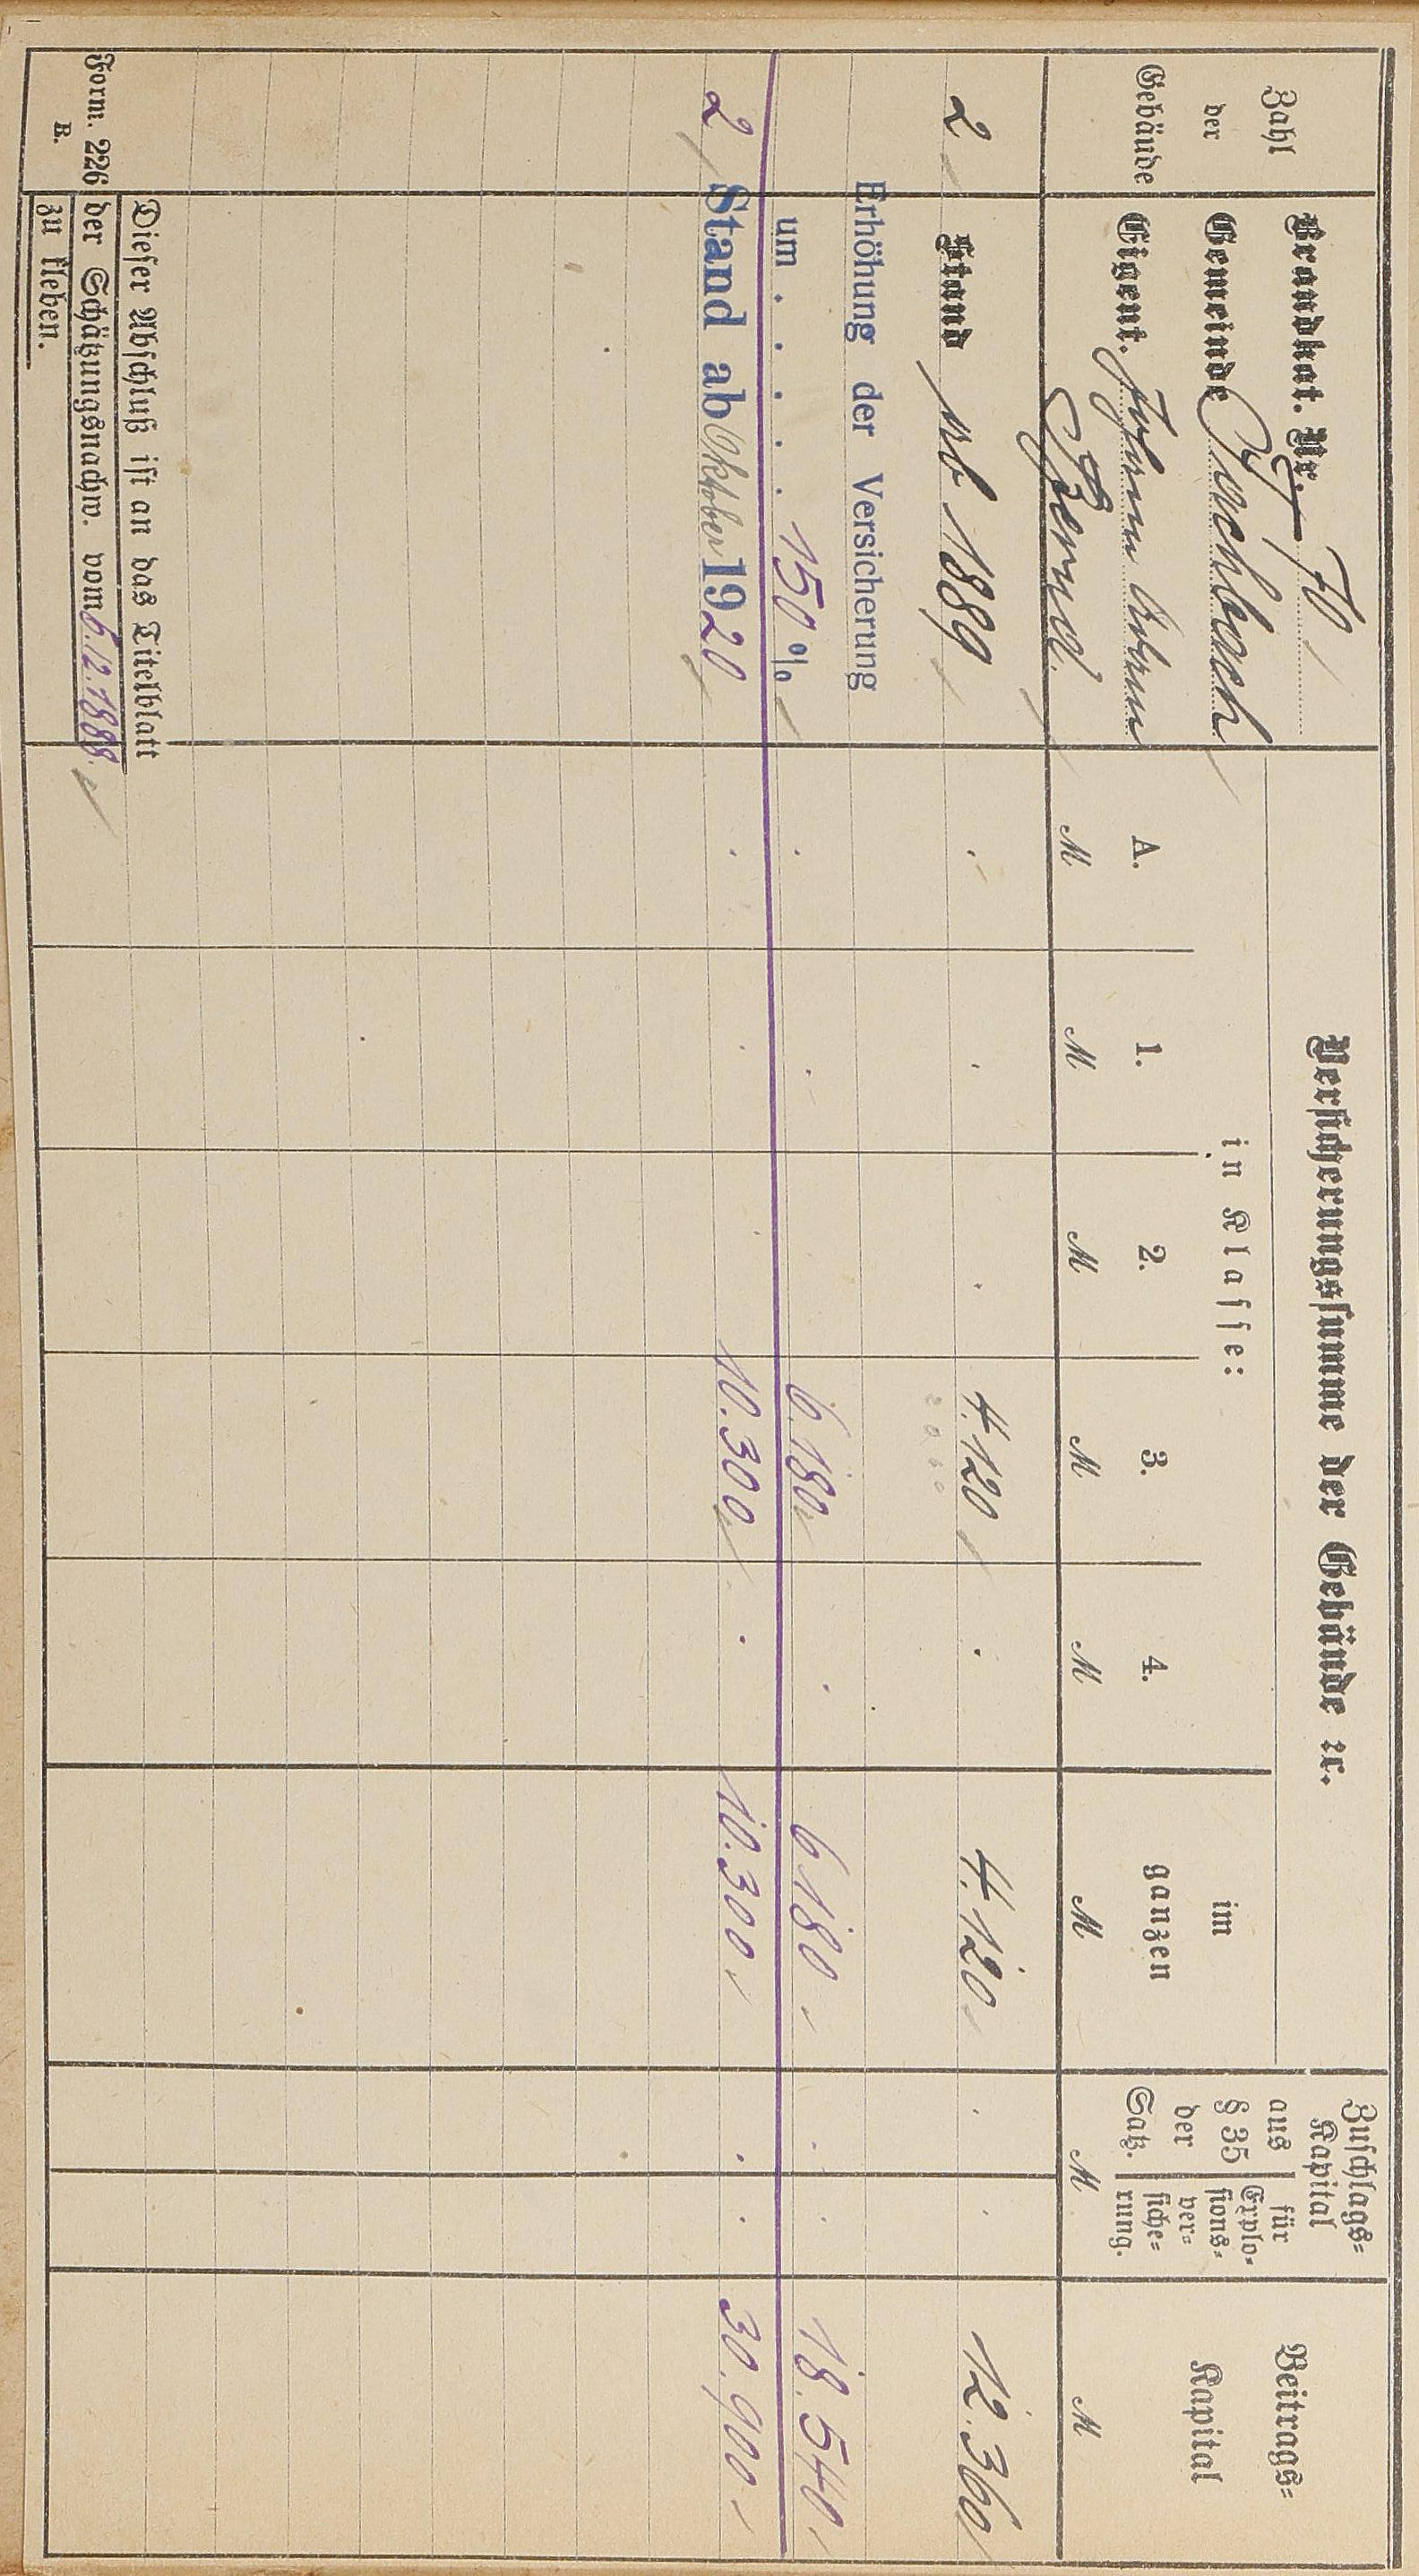 Zahl
der
Gebäude
Brandkat. Nr. 70
Gemeinde
Eigent. Johann Adam
Bernd.
Versicherungssumme der Gebäude ꝛc.
in Klasse:
A.
1.
2.
3.
4.
im
ganzen
Zuschlags-
Kapital
aus
§ 35
der
Satz.
für
Explo-
sions-
ver-
siche-
rung.
Beitrags-
Kapital
M M M M M M M M
2 Stand ab 1889 . . . 4.120 . 4.120 . . 12.360
Erhöhung der Versicherung
um . . . . . 150 % . . 6.180 . 6 180 . . 18.540
2 Stand ab Oktober 1920 . . . 10.300 . 10.300 . . 30.900
Dieser Abschluß ist an das Titelblatt
Form. 226 der Schätzungsnachw. vom 6.12.1888.
B. zu kleben.